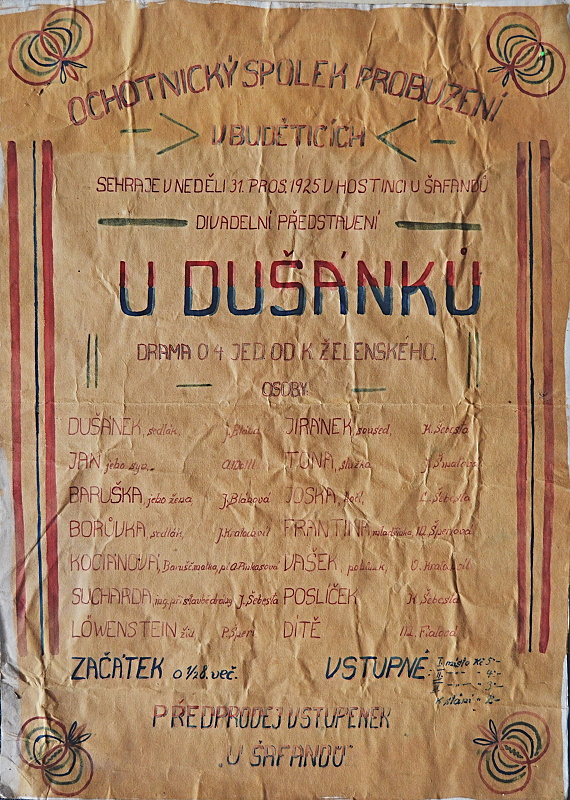 OCHOTNICKÝ SPOLEK PROBUZENÍ
V BUDĚTICÍCH
SEHRAJE V NEDĚLI 31. PROS. 1925 V HOSTINCI U ŠAFANDŮ
DIVADELNÍ PŘEDSTAVENÍ
U DUŠÁNKŮ
DRAMA O 4 JED. OD K. ŽELENSKÉHO.
OSOBY:
DUŠÁNEK, sedlák, J. Blábol JIRÁNEK, soused, K. Šebesta
JAN, jeho syn,
TONA, služka,
BARUŠKA, jeho žena, J. Blábová JOSKA, Šebesta
BOROVKA, sedlák, J. Kratochvíl FRANTINA,
KOCIÁNOVÁ, VAŠEK,
SUCHARDA, ing. při stavbě dráhy J. Šebesta POSLÍČEK K. Šebesta
LÖWENSTEIN, žid, DÍTĚ M. Fialová
ZAČÁTEK o ½8. več. VSTUPNÉ: I. místo Kč 5·-
II. 4·-
3·-
K stání 2·-
PŘEDPRODEJ VSTUPENEK
„U ŠAFANDŮ"